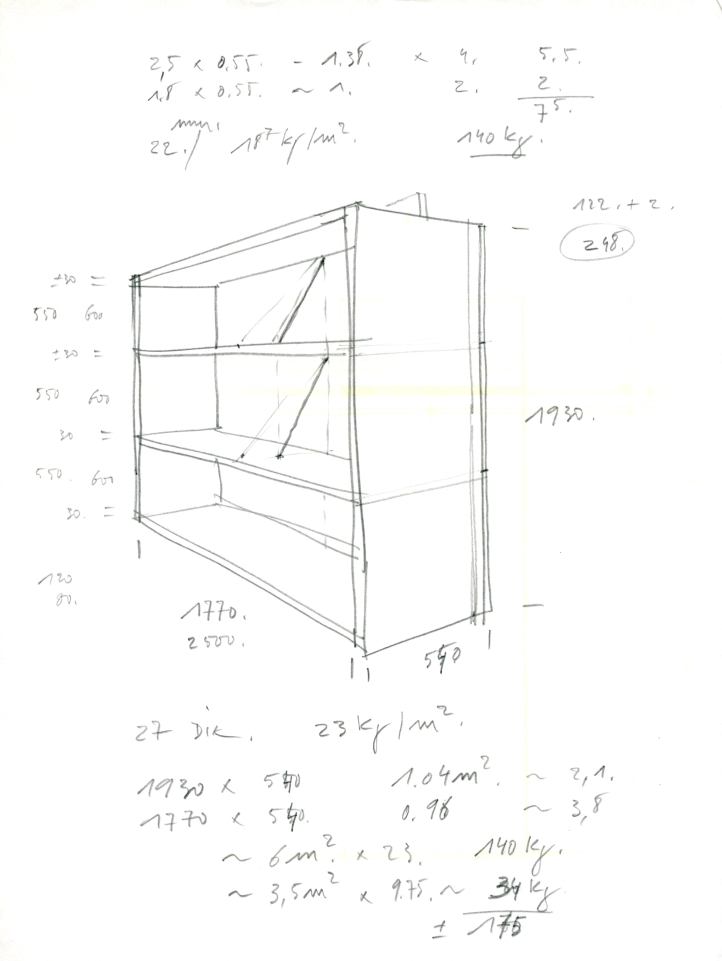 2,5 x 0.55. - 1.38. x 4. 5.5.
1.8 x 0.55. ~ 1. 2. 2.
7 5.
mm.
22./ 18⁷ kg/m². 140 kg.
122. + 2.
248.
±30 =
550 600
±30 =
550 600
30 =
550. 600
30. =
1930.
120
80.
1770.
2500.
540
27 Dik. 23 kg/m².
1930 x 540 1.04 m². ~ 2,1.
1770 x 540. 0.96 ~ 3,8
~ 6 m². x 23. 140 kg.
~ 3,5 m² x 9.75. ~ 34 kg
± 175